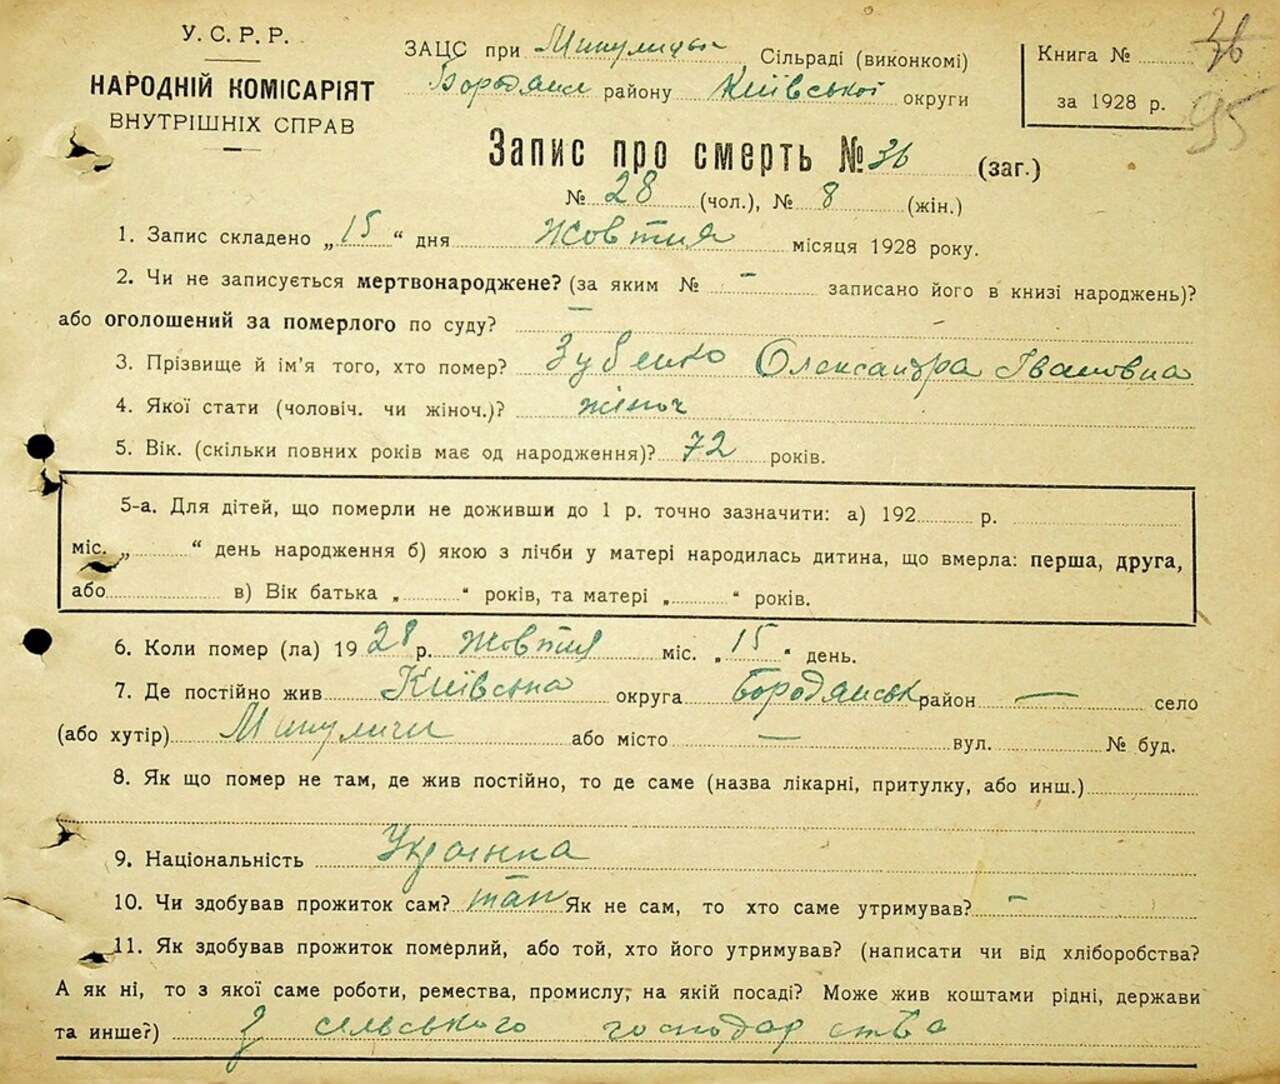 У. С. Р. Р.
НАРОДНІЙ КОМІСАРІЯТ
ВНУТРІШНІХ СПРАВ
ЗАЦС при Микулицьк Сільраді (виконкомі)
Бородянск району Київської округи
Книга №
за 1928 р.
36
95
Запис про смерть № 36 (заг.)
№ 28 (чол.), № 8 (жін.)
1. Запис складено „15“ дня жовтня місяця 1928 року.
2. Чи не записується мертвонароджене? (за яким № – записано його в книзі народжень)?
або оголошений за померлого по суду? –
3. Прізвище й ім'я того, хто помер? Зубенко Олександра Івановна
4. Якої стати (чоловіч. чи жіноч.)? жіноч
5. Вік. (скільки повних років має од народження)? 72 років.
5-а. Для дітей, що померли не доживши до 1 р. точно зазначити: а) 192 р.
міс. „ “ день народження б) якою з лічби у матері народилась дитина, що вмерла: перша, друга,
або в) Вік батька „ “ років, та матері „ “ років.
6. Коли помер (ла) 1928 р. жовтня міс. „15“ день.
7. Де постійно жив Київська округа Бородянськ район — село
(або хутір) Микуличи або місто — вул. № буд.
8. Як що помер не там, де жив постійно, то де саме (назва лікарні, притулку, або инш.)
9. Національність Українка
10. Чи здобував прожиток сам? так Як не сам, то хто саме утримував? –
11. Як здобував прожиток померлий, або той, хто його утримував? (написати чи від хліборобства?
А як ні, то з якої саме роботи, ремества, промислу, на якій посаді? Може жив коштами рідні, держави
та инше?) З сельського господарства